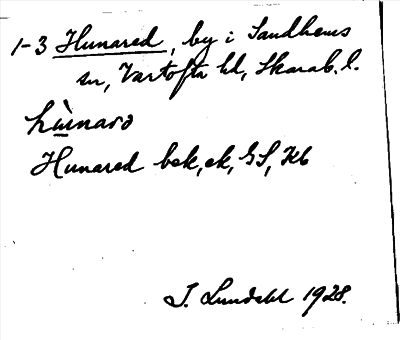 1-3 Hunared, by i Sandhems
sn, Vartofta hd, Skarab. l.
hu̖naro
Hunared bek, ek, GS, Kb
I. Lundahl 1928.